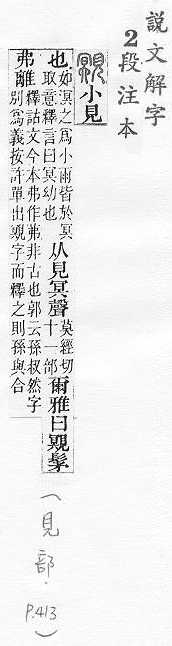 說文解字
2段注本
覭小見
也如溟之爲小雨皆於冥
取意釋言曰冥幼也
从見冥聲莫經切
十一部
爾雅曰覭髳
弗離釋詁文今本弗作茀非古也郭云孫叔然字
別爲義按許單出覭字而釋之則孫與合
(見部.P.413)